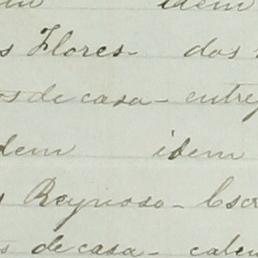 idem
s Flores - dos
os de casa - entre
dem idem
s Reynoso - Esc
s de casa - cale